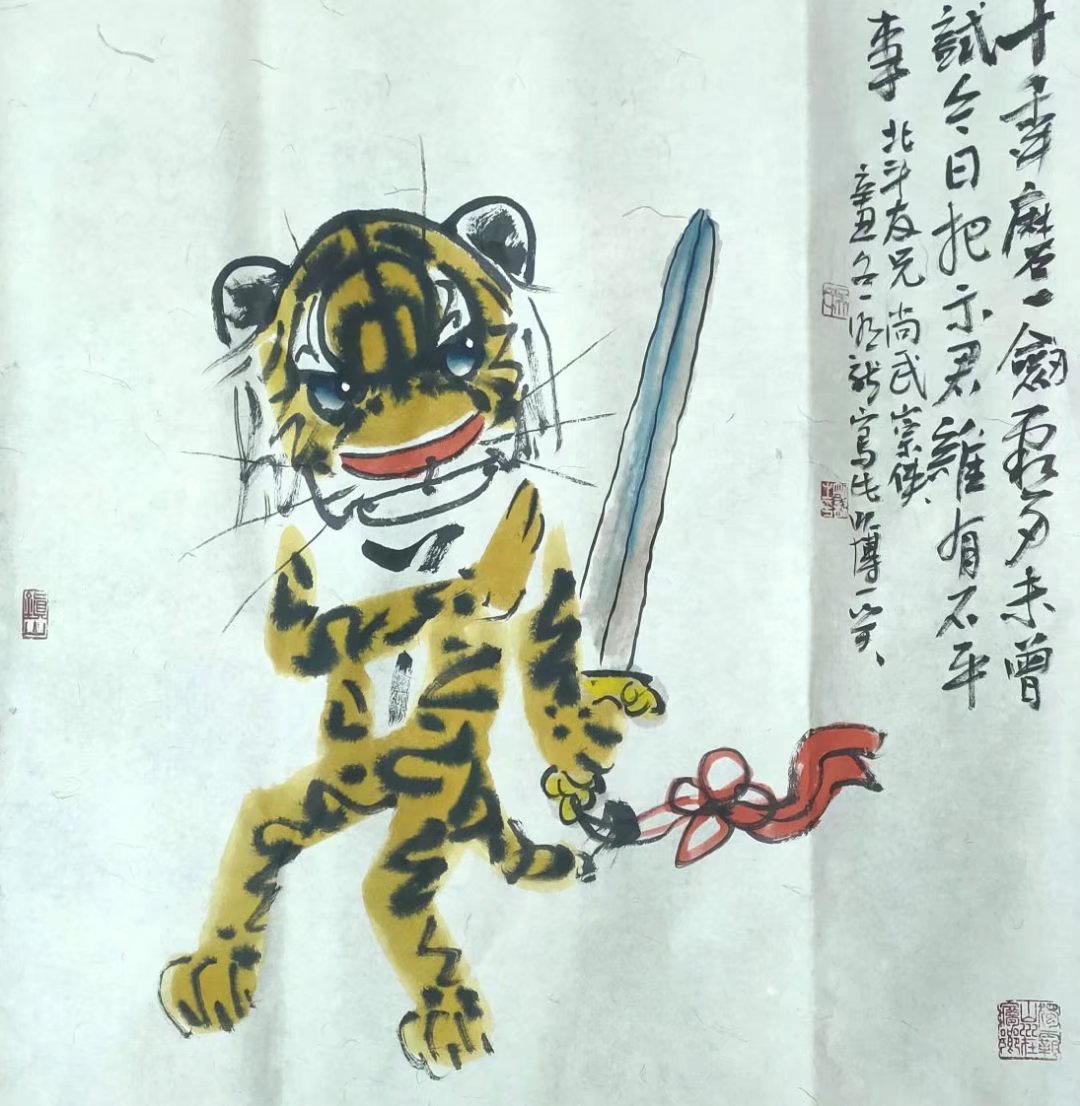 十年磨一劍霜刃未曾
試今日把示君誰有不平
事 北斗友兄尚武崇俠、
辛丑冬一龍寫此以博一笑、